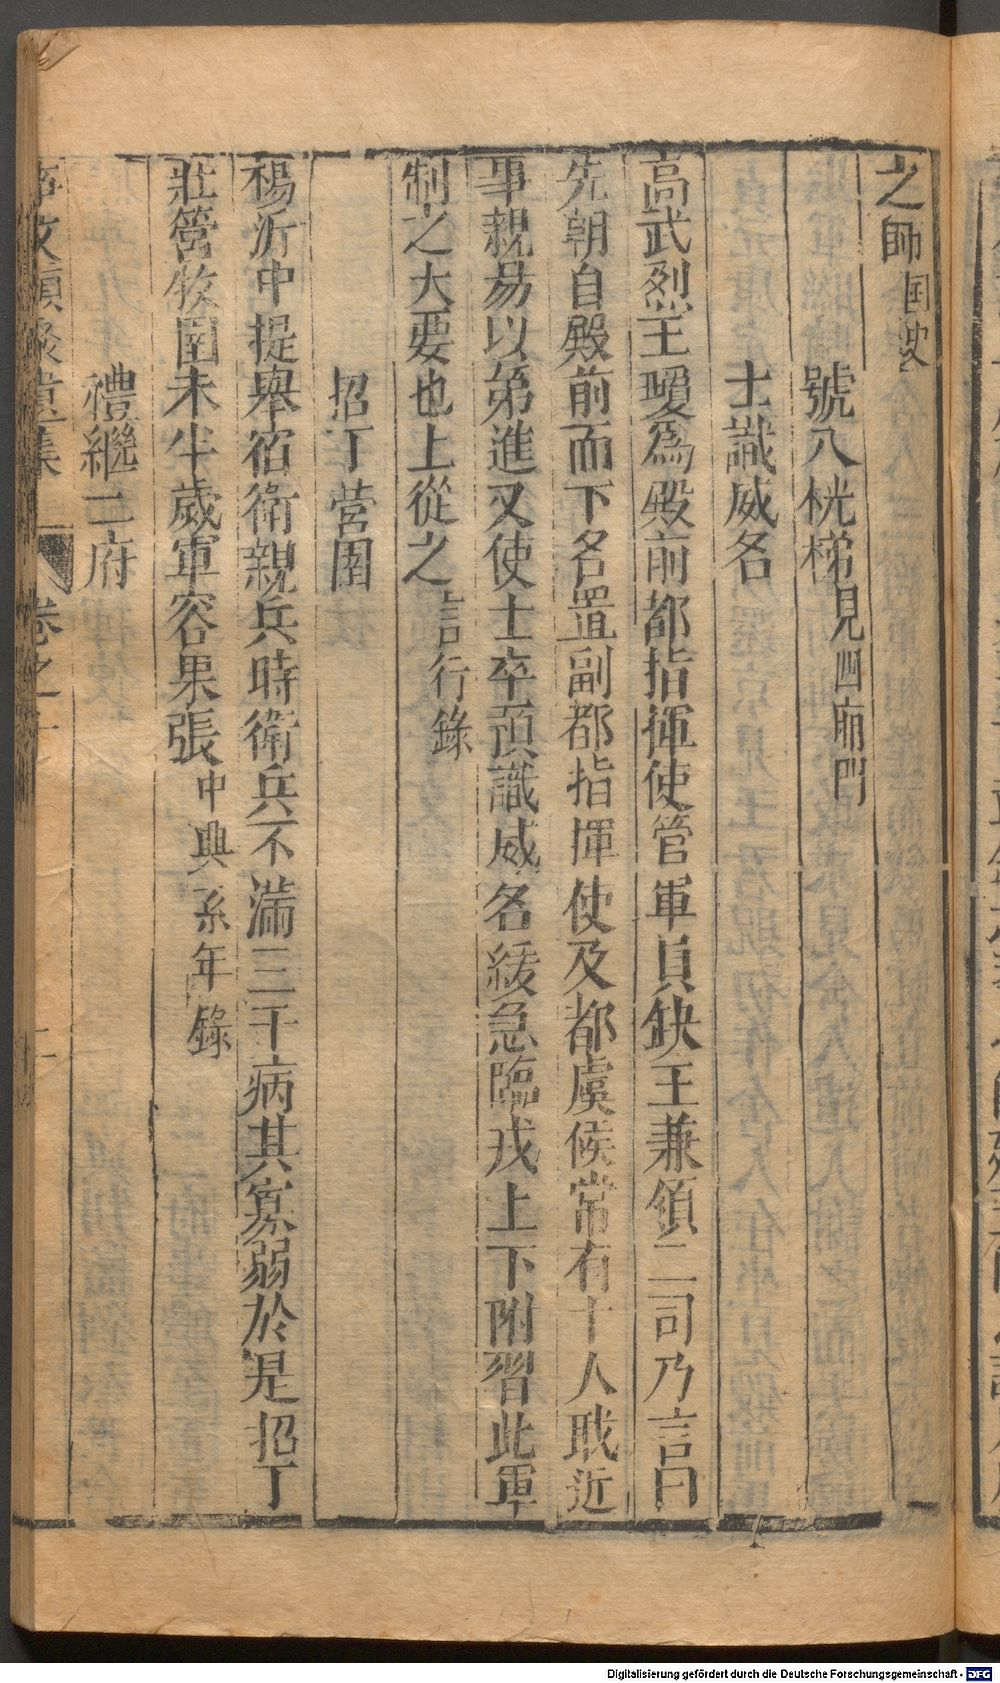 之師国史
號八桄梯見四廂門
士識威名
高武烈王瓊爲殿前都指揮使管軍員缺王兼領二司乃言曰
先朝自殿前而下名置副都指揮使及都虞候常有十人戢近
事親易以第進又使士卒預識威名緩急臨戎上下附習此軍
制之大要也上從之言行錄
招丁營圍
楊沂中提舉宿衛親兵時衛兵不滿三千病其寡弱於是招丁
莊營牧圉未半歲軍容果張中興系年錄
禮繼二府
事文類聚遺集 卷之十
Digitalisierung gefördert durch die Deutsche Forschungsgemeinschaft - DFG